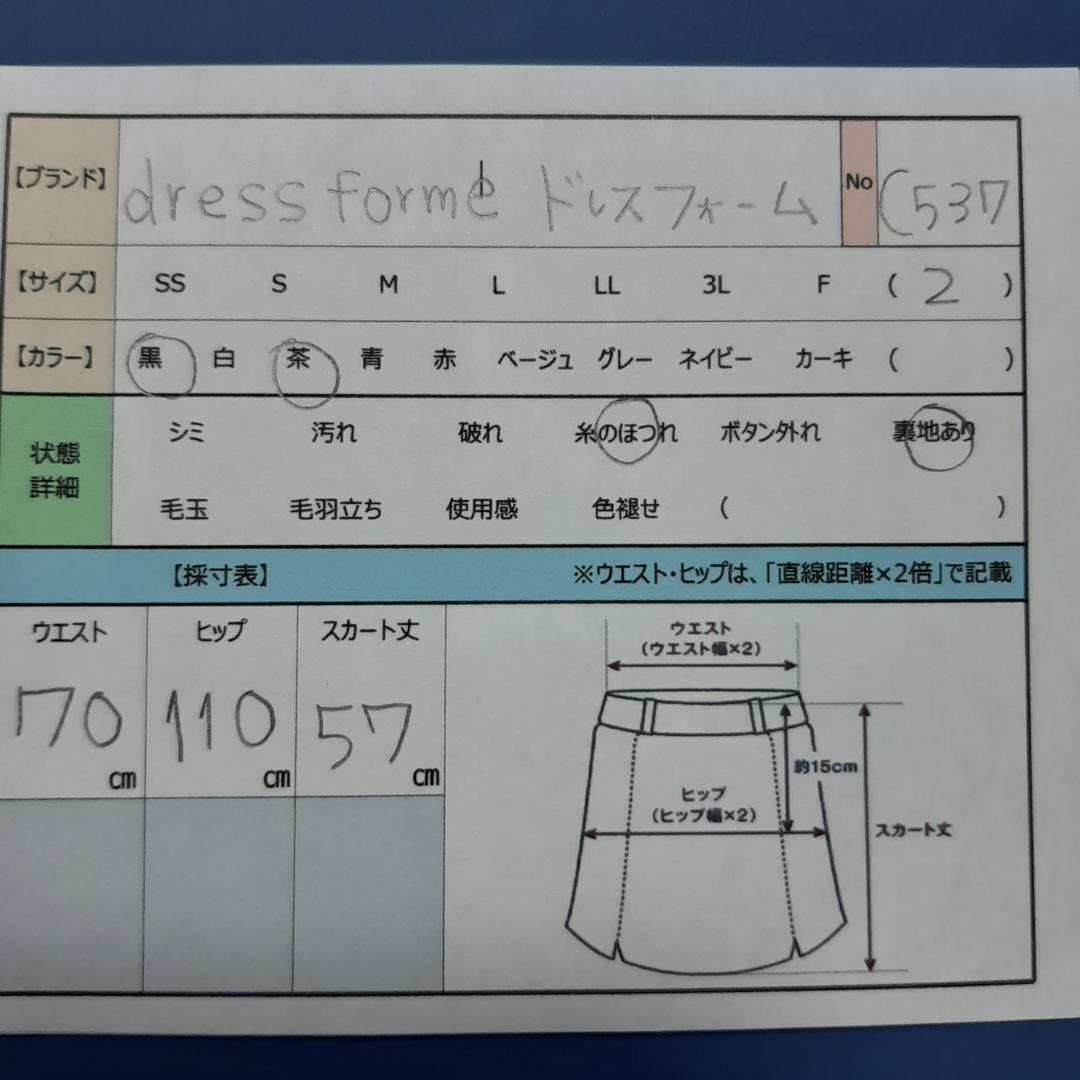 【ブランド】 dress forme ドレスフォーム No C537
【サイズ】 SS S M L LL 3L F ( 2 )
【カラー】 黒 白 茶 青 赤 ベージュ グレー ネイビー カーキ ( )
状態詳細 シミ 汚れ 破れ 糸のほつれ ボタン外れ 裏地あり
毛玉 毛羽立ち 使用感 色褪せ ( )
【採寸表】 ※ウエスト・ヒップは、「直線距離×2倍」で記載
ウエスト ヒップ スカート丈
70cm 110cm 57cm
ウエスト
(ウエスト幅×2)
約15cm
ヒップ
(ヒップ幅×2)
スカート丈